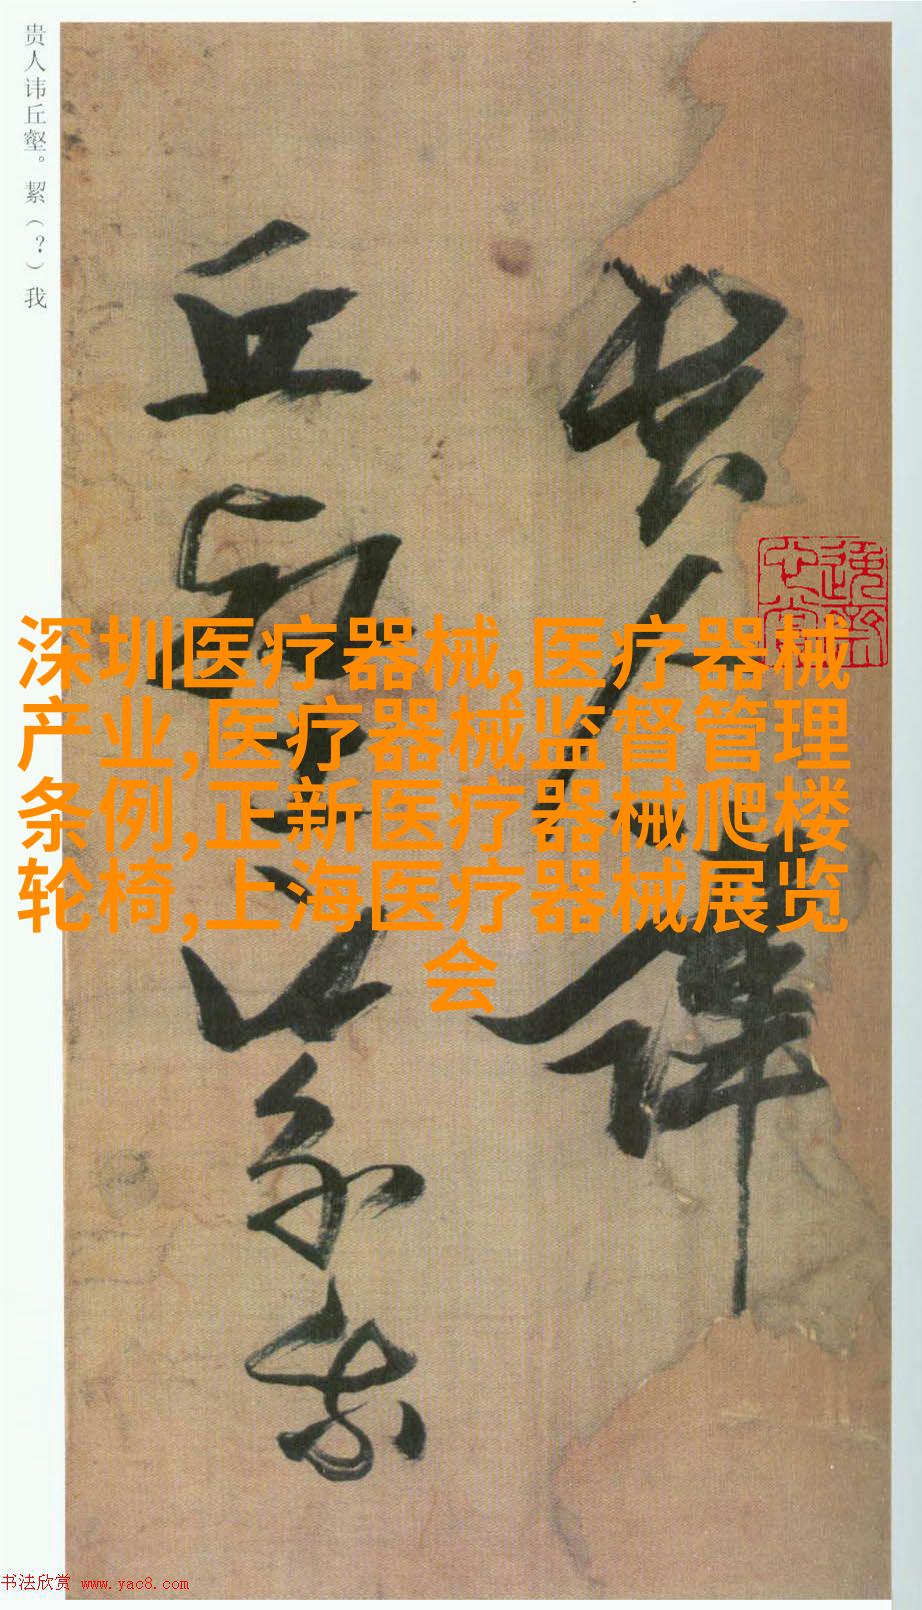 贵人讳丘壑。絜（？）我
贵人讳
丘壑
絜我
深圳医疗器械,医疗器械
产业,医疗器械监督管理
条例,正新医疗器械爬楼
轮椅,上海医疗器械展览
会
书法欣赏 www.yac8.com